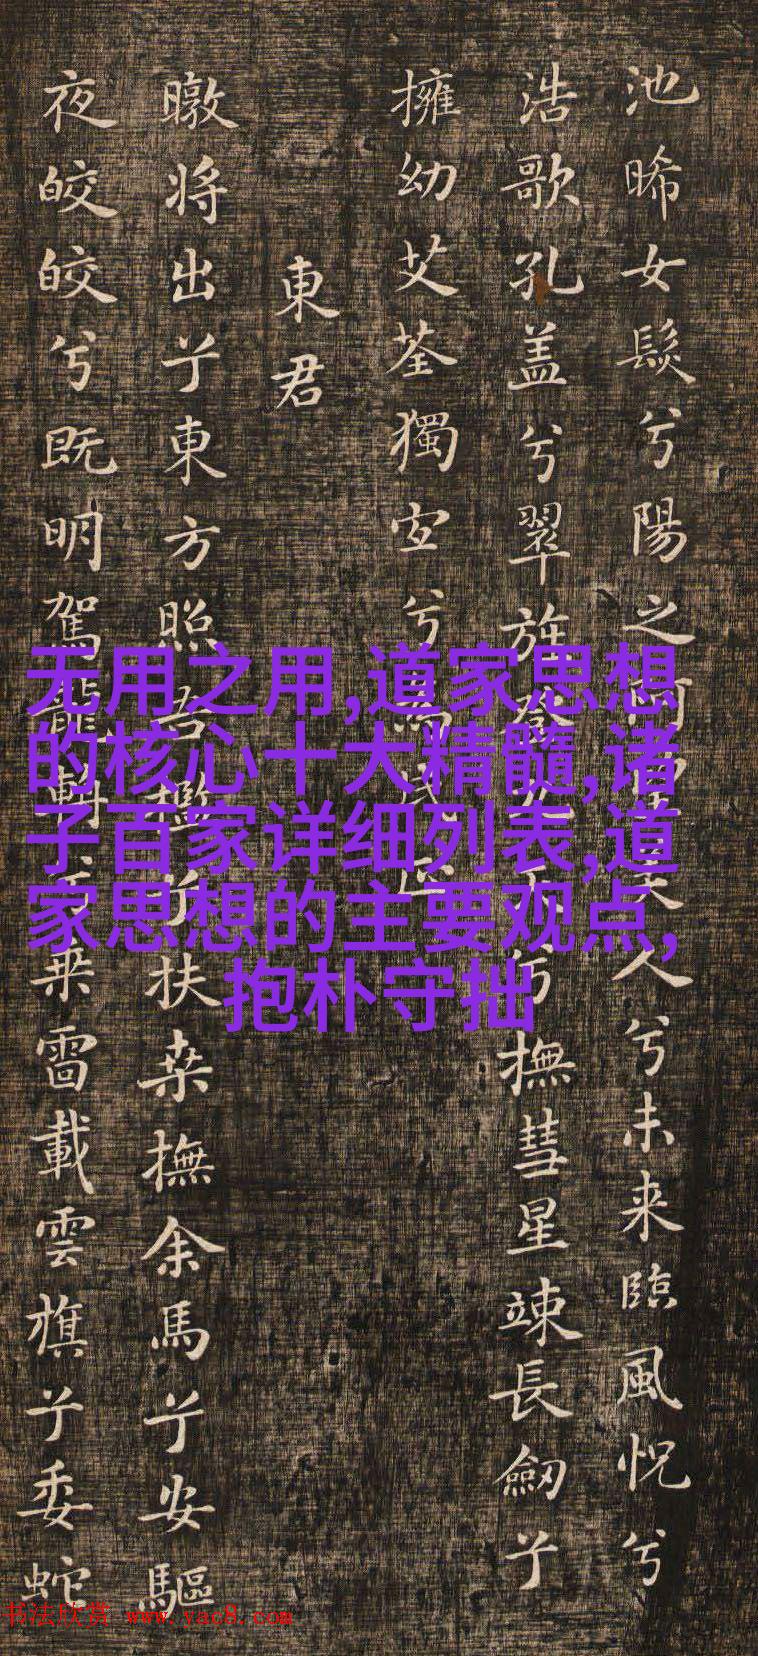 池晞女髮兮陽之阿望美人兮未来臨風怳兮
浩歌孔盖兮翠旌登九天兮撫彗星竦長劒兮
擁幼艾荃獨宜兮為民正
東君
暾将出兮東方照吾檻兮扶桒撫余馬兮安驅
夜皎皎兮既明駕龍輈兮乗雷載雲旗兮委蛇
无用之用,道家思想
的核心十大精髓,诸
子百家详细列表,道
家思想的主要观点,
抱朴守拙
书法欣赏 www.yac8.com